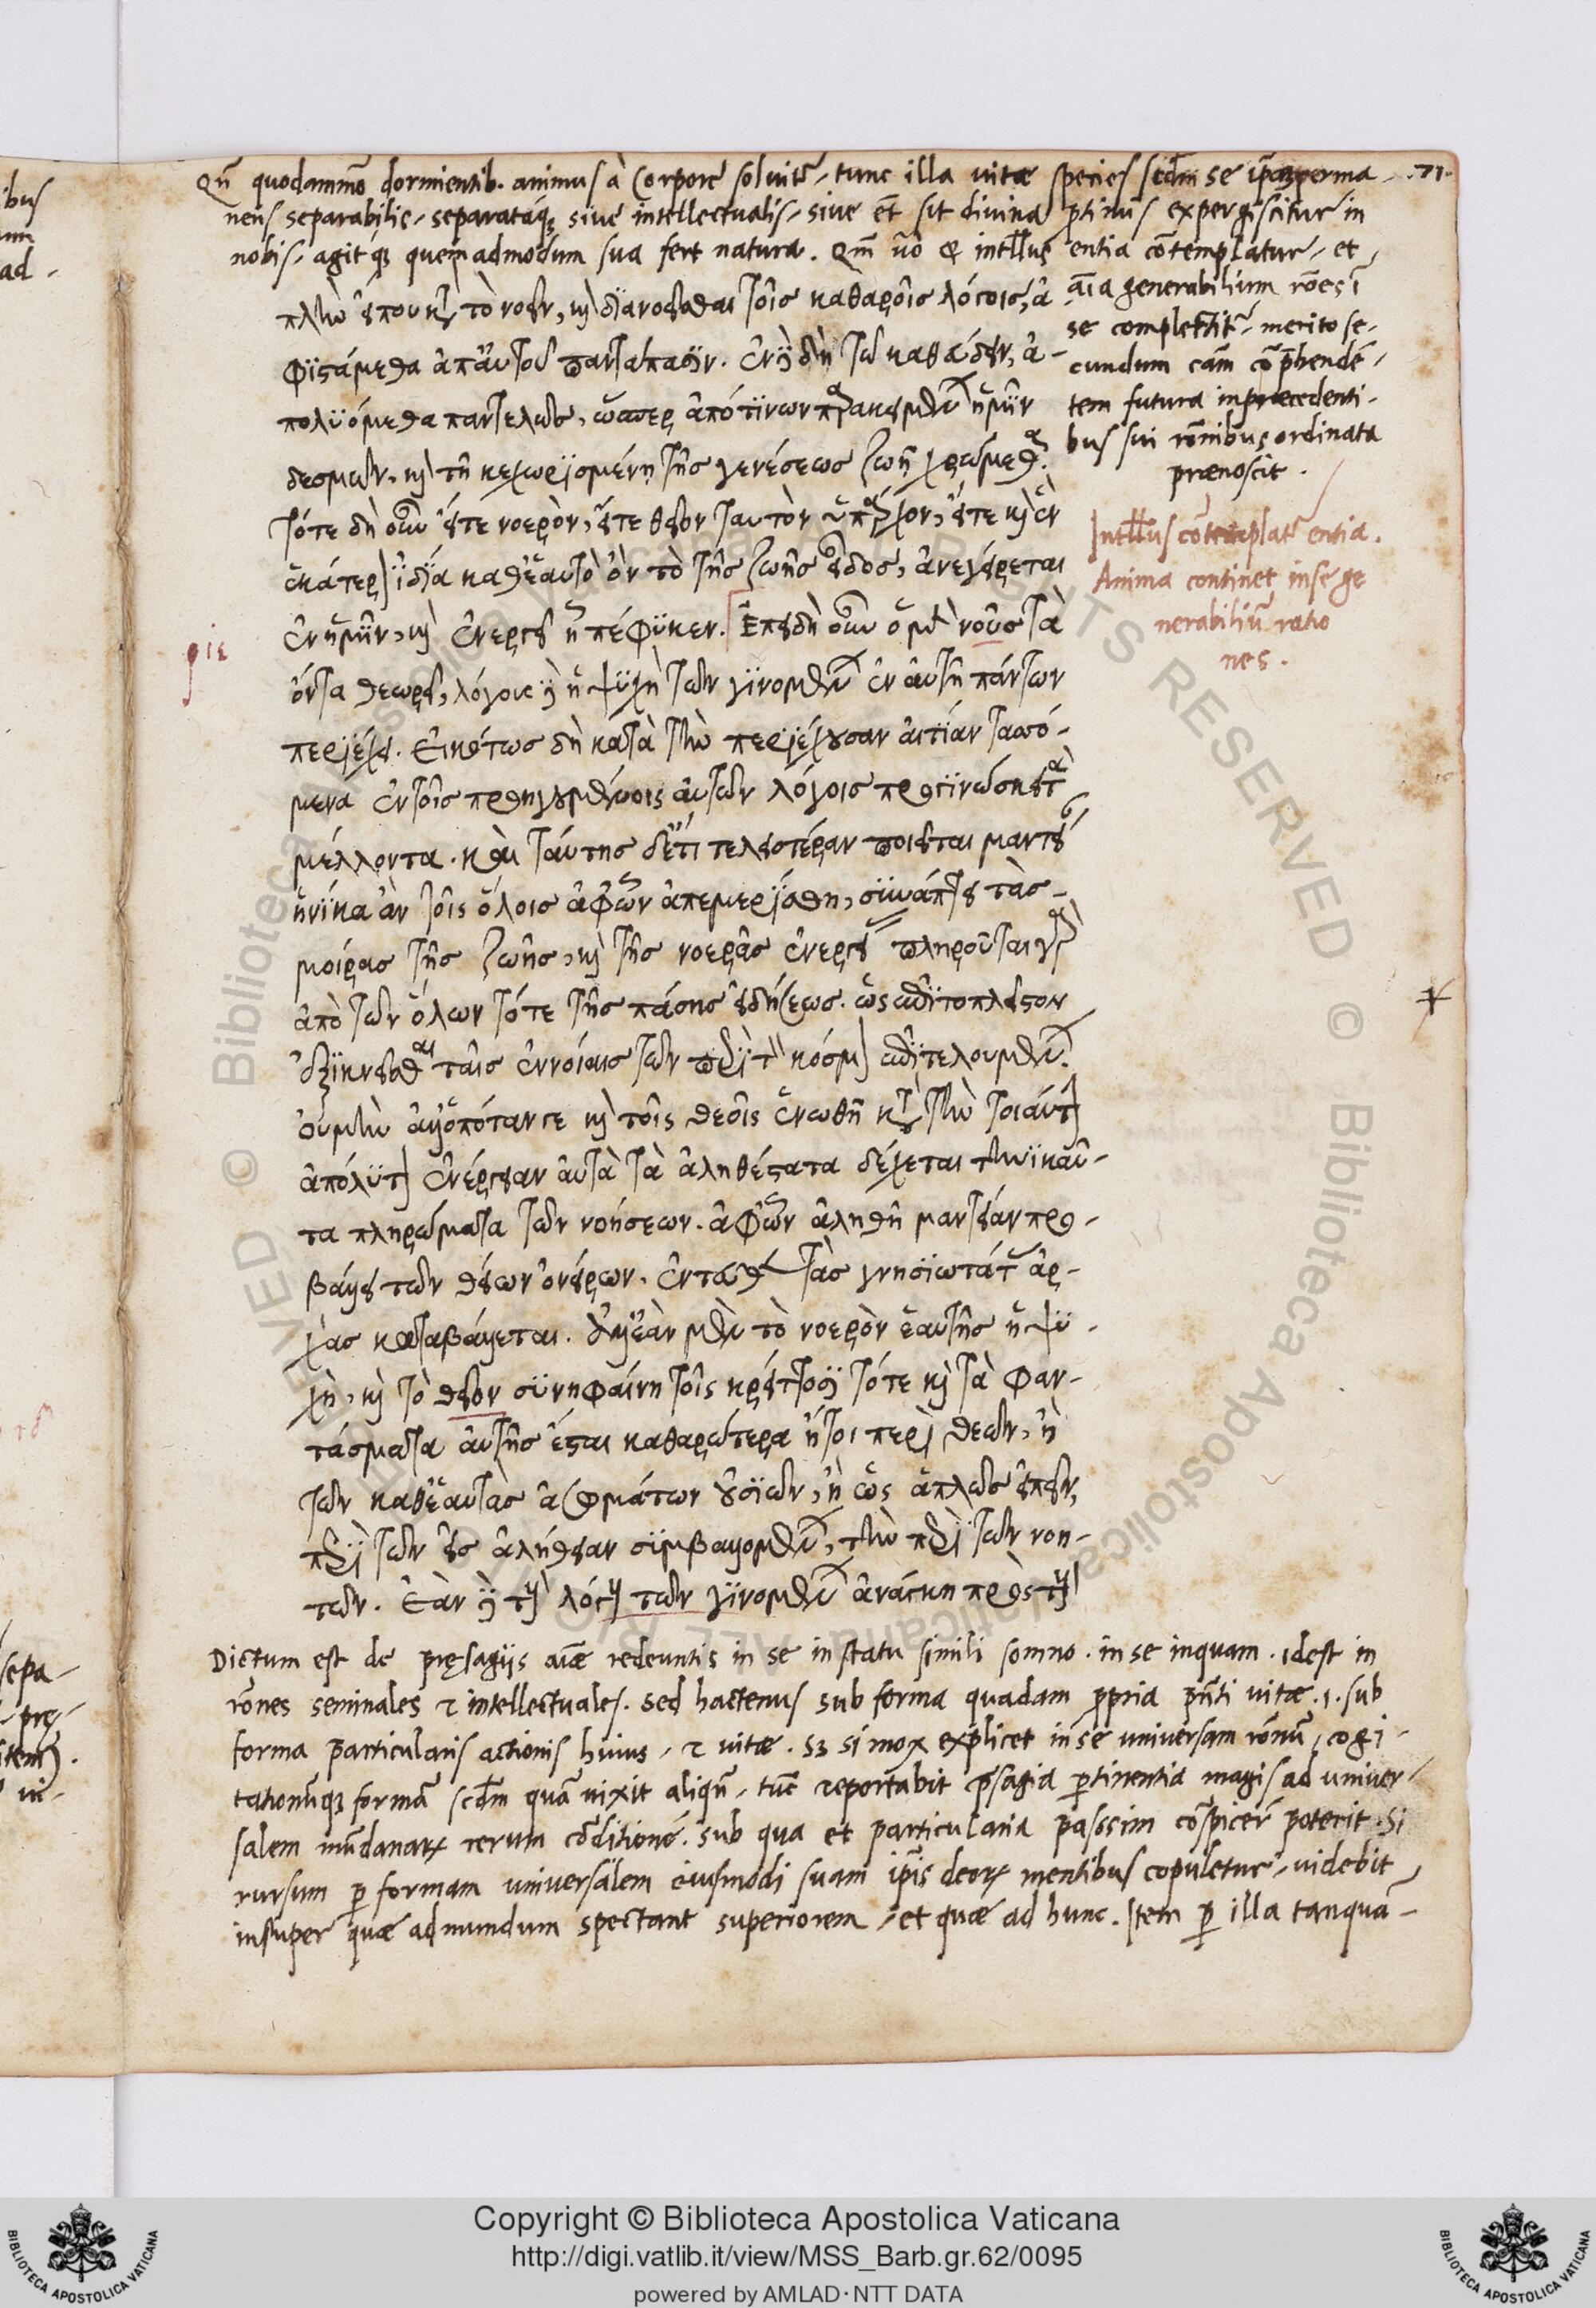 Qn̄ quodammō dormientib. animus à corpore soluitr̄, tunc illa uitæ species scdm̄ se ip̄am perma- .71.
nens separabilis, separataq́ȝ siue intellectualis, siue et̄ sit diuina p̄tinus expergiscitur in
nobis, agitq́ȝ quemadmodum sua fert natura. Qm̄ uō & intll̄us entia cōtemplatur, et
aīa generabilium rōes ī
se complectitr̄, merito se-
cundum cām cōp̄hendē-
tem futura in præcedenti-
bus sui rōnibus ordinata
prænoscit.
Intll̄us cōtemplatr̄ entia.
Anima continet in se ge
nerabiliū ratio
nes.
πλὴν εἴπου κατὰ τὸ νοεῖν, καὶ διανοεῖσθαι τοῖς καθαροῖς λόγοις, ἀ
φιστάμεθα ἀπ' αὐτοῦ παντάπασιν. ἐν δὲ δὴ τῶ καθεύδειν, ἀ-
πολυόμεθα παντελῶς, ὥσπερ ἀπό τινων παρακειμένων ἡμῖν
δεσμῶν, καὶ τῆ κεχωρισμένη τῆς γενέσεως ζωῆ χρώμεθα.
τότε δὴ οὖν εἴτε νοερὸν, εἴτε θεῖον ταυτὸν ὑπάρχον, εἴτε καὶ ἓν
ἑκάτερον ἰδία καθ' ἑαυτὸ ὂν τὸ τῆς ζωῆς εἶδος, ἀνεγείρεται
ἐν ἡμῖν, καὶ ἐνεργεῖ ἧ πέφυκεν. Ἐπειδὴ οὖν ὁ μὲν νοῦς τὰ
ὄντα θεωρεῖ, λόγους δὲ ἡ ψυχὴ τῶν γινομένων ἐν αὑτῆ πάντων
περιέχει. εἰκότως δὴ κατὰ τὴν περιέχουσαν αἰτίαν ταπό-
μενα ἐν τοῖς προηγουμένοις αὐτῶν λόγοις προγινώσκει τὰ
μέλλοντα. καὶ ταύτης δ' ἔτι τελειοτέραν ποιεῖται μαντείαν
ἡνίκα ἂν τοῖς ὅλοις ἀφ' ὧν ἀπεμερίσθη, συνάπτει τὰς
μοίρας τῆς ζωῆς, καὶ τῆς νοερᾶς ἐνεργείας πληροῦται γὰρ
ἀπὸ τῶν ὅλων τότε τῆς πάσης εἰδήσεως. ὡς ἐπὶ τὸ πλεῖστον
ἐξικνεῖσθαι ταῖς ἐννοίαις τῶν περὶ τὸν κόσμον ἐπιτελουμένων.
οὐ μὴν ἀλλ' ὁπόταν γε καὶ τοῖς θεοῖς ἑνωθῆ κατὰ τὴν τοιαύτην
ἀπόλυτον ἐνέργειαν αὐτὰ τὰ ἀληθέστατα δέχεται τηνικαῦ-
τα πληρώματα τῶν νοήσεων. ἀφ' ὧν ἀληθῆ μαντείαν προ-
βάλλει τῶν θείων ὀνείρων. ἐντεῦθεν τὰς γνησιωτάτας ἀρ-
χὰς καταβάλλεται. ἀλλ' ἐὰν μὲν τὸ νοερὸν ἑαυτῆς ἡ ψυ-
χὴ, καὶ τὸ θεῖον συνηφαίνη τοῖς κρείττοσι τότε καὶ τὰ φαν-
τάσματα αὐτῆς ἔσται καθαρώτερα ἤτοι περὶ θεῶν, ἢ
τῶν καθ' ἑαυτὰς ἀσωμάτων οὐσιῶν, ἢ ὡς ἁπλῶς εἰπεῖν,
περὶ τῶν εἰς ἀλήθειαν συμβαλλομένων, τὴν περὶ τῶν νοη-
τῶν. Ἐὰν δὲ τοὺς λόγους τῶν γινομένων ἀνάγκη πρὸς τοὺς
Dictum est de pręsagijs aīæ redeuntis in se in statu simili somno. in se inquam. idest in
rōnes seminales & intellectuales. sed hactenus sub forma quadam p̄pria pn̄ti uitæ .i. sub
forma particularis actionis huius, & uitæ. Sȝ si mox explicet in se uniuersam rōnū, cogi-
tationūqȝ formā scdm̄ quā uixit aliqn̄, tūc reportabit p̄sagia p̄tinentia magis ad uniuer-
salem mūdanarꝝ rerum cōditionē. sub qua et particularia passim cōspicer̄ poterit. Si
rursum p̄ formam uniuersalem eiusmodi suam ip̄is deorꝝ mentibus copuletur, uidebit
insuper quæ ad mundum spectant superiorem, et quæ ad hunc. Item p̄ illa tanquā-
Copyright © Biblioteca Apostolica Vaticana
http://digi.vatlib.it/view/MSS_Barb.gr.62/0095
powered by AMLAD·NTT DATA